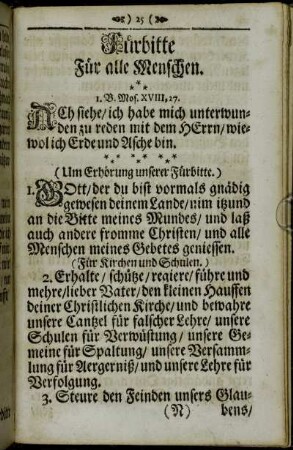 ) 25 (
Fürbitte
Für alle Menschen.
* * *
1. B. Mos. XVIII, 17.
ACh siehe/ ich habe mich unterwun-
den zu reden mit dem HErrn/ wie-
wol ich Erde und Asche bin.
* * * * * *
(Um Erhörung unserer Fürbitte.)
1. GOtt/ der du bist vormals gnädig
gewesen deinem Lande/ nim itzund
an die Bitte meines Mundes/ und laß
auch andere fromme Christen/ und alle
Menschen meines Gebetes geniessen.
(Für Kirchen und Schulen.)
2. Erhalte/ schütze/ regiere/ führe und
mehre/ lieber Vater/ den kleinen Hauffen
deiner Christlichen Kirche/ und bewahre
unsere Cantzel für falscher Lehre/ unsere
Schulen für Verwüstung/ unsere Ge-
meine für Spaltung/ unsere Versamm-
lung für Aergerniß/ und unsere Lehre für
Verfolgung.
3. Steure den Feinden unsers Glau-
(N) bens/